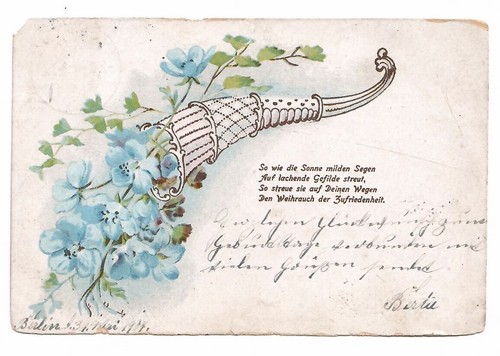 So wie die Sonne milden Segen
Auf lachende Gefilde streut,
So streue sie auf Deinen Wegen
Den Weihrauch der Zufriedenheit.
Glückwunsch zum
Geburtstage verbunden mit
vielen Grüßen sendet
Bertie
Berlin